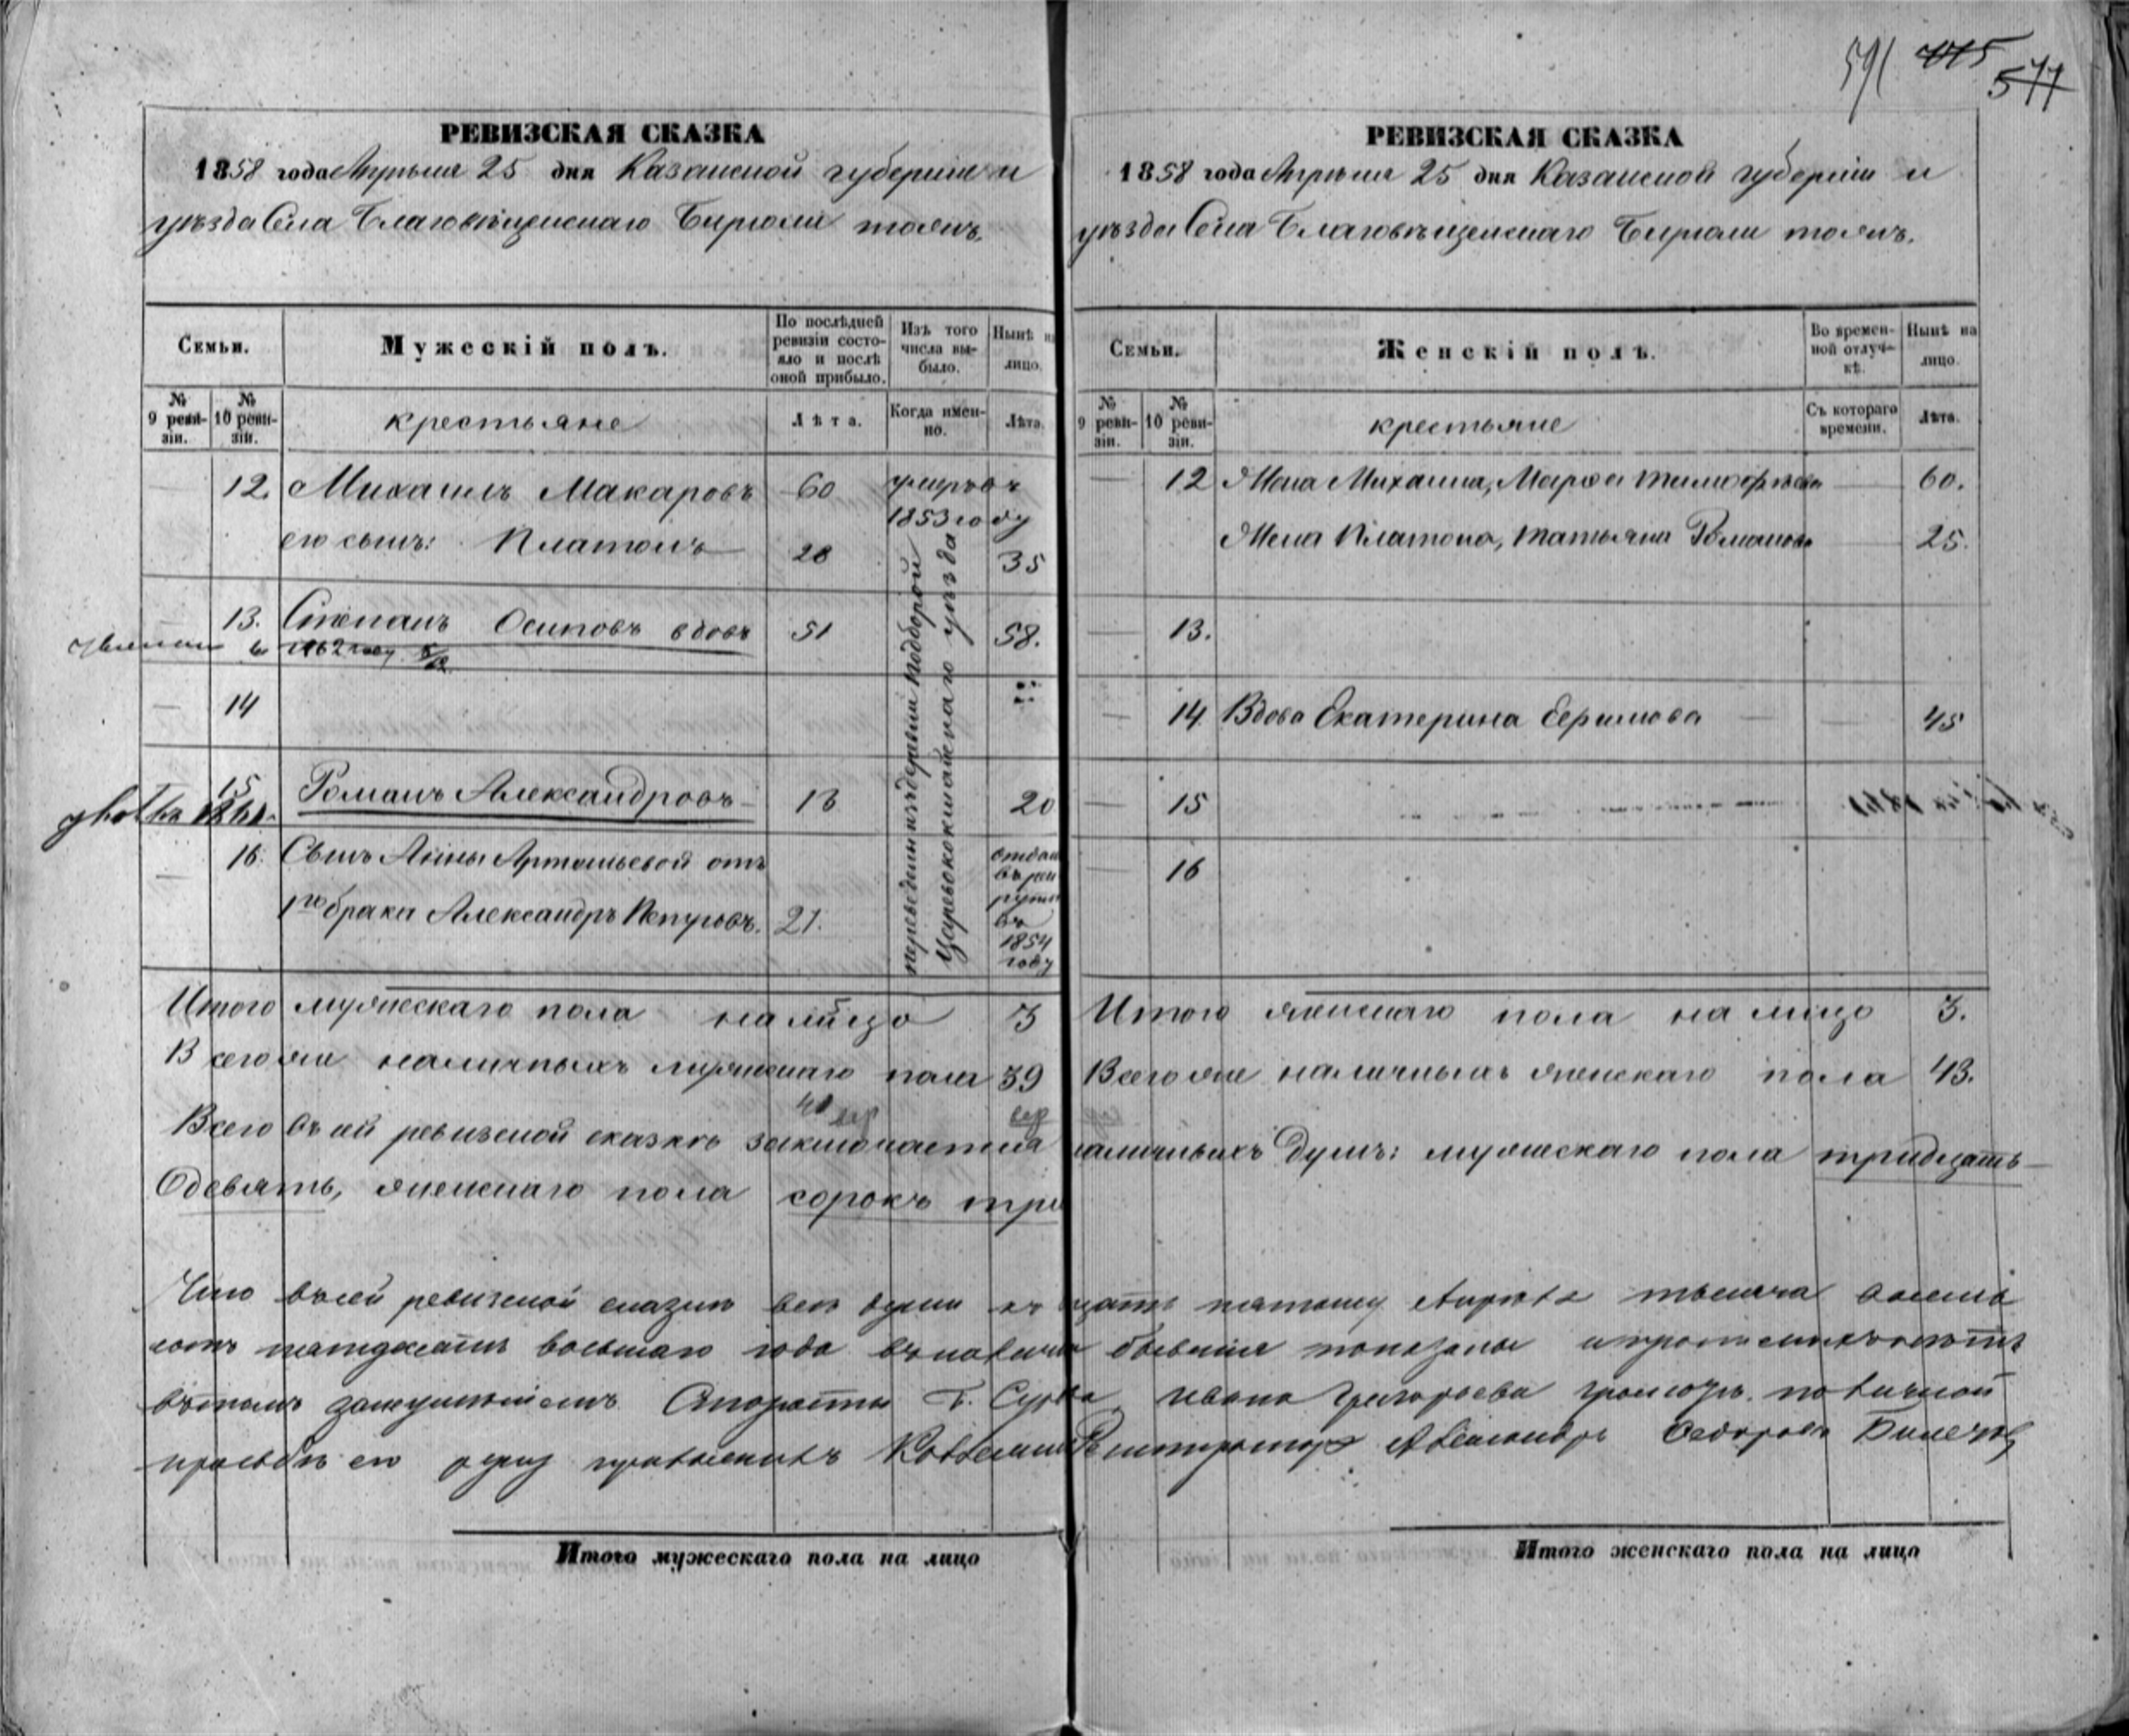 591 775 577
РЕВИЗСКАЯ СКАЗКА
1858 года Апрѣля 25 дня Казанской губерніи и
уѣзда Села Благовѣщенскаго Бирюли тожъ.
Семьи.
Мужескій полъ.
По послѣдней ревизіи состояло и послѣ оной прибыло.
Изъ того числа выбыло.
Нынѣ на лицо.
№ 9 ревизіи.
№ 10 ревизіи.
крестьяне
Лѣта.
Когда именно.
Лѣта.
12. Михаилъ Макаровъ 60 умеръ въ
1853 году
его сынъ: Платонъ 28 35
13. Степанъ Осиповъ вдовъ 51 58.
въ 1862 году
14
15 Романъ Александровъ 13 20
16. Сынъ Анны Артемьевой отъ
1го брака Александръ Петровъ. 21.
отдан
въ рек
руты
въ
1854
году
переведенны изъ деревни Подборной
Царевококшайскаго уѣзда
Итого мужескаго пола на лицо 3
Всего же наличныхъ мужескаго пола 39
Всего въ сей ревизской сказкѣ заключается
Одевять, женскаго пола сорокъ три
РЕВИЗСКАЯ СКАЗКА
1858 года Апрѣля 25 дня Казанской губерніи и
уѣзда Села Благовѣщенскаго Бирюли тожъ.
Семьи.
Женскій полъ.
Во временной отлучкѣ.
Нынѣ на лицо.
№ 9 ревизіи.
№ 10 ревизіи.
крестьяне
Съ котораго времени.
Лѣта.
12 Жена Михаила, Марфа Тимофѣева 60.
Жена Платона, Татьяна Романова 25.
13.
14. Вдова Екатерина Ефимова 45
15
16
Итого женскаго пола на лицо 3.
Всего же наличныхъ женскаго пола 43.
наличныхъ душъ: мужескаго пола тридцать
Что въ сей ревизской сказкѣ всѣ души къ дцать пятому Апрѣля тысяча восемь
сотъ пятьдесятъ восьмаго года въ наличи бывшія показаны
Ивана Григорьева по личной
прозьбѣ его руку приложилъ Александръ Федоровъ
Итого мужескаго пола на лицо
Итого женскаго пола на лицо